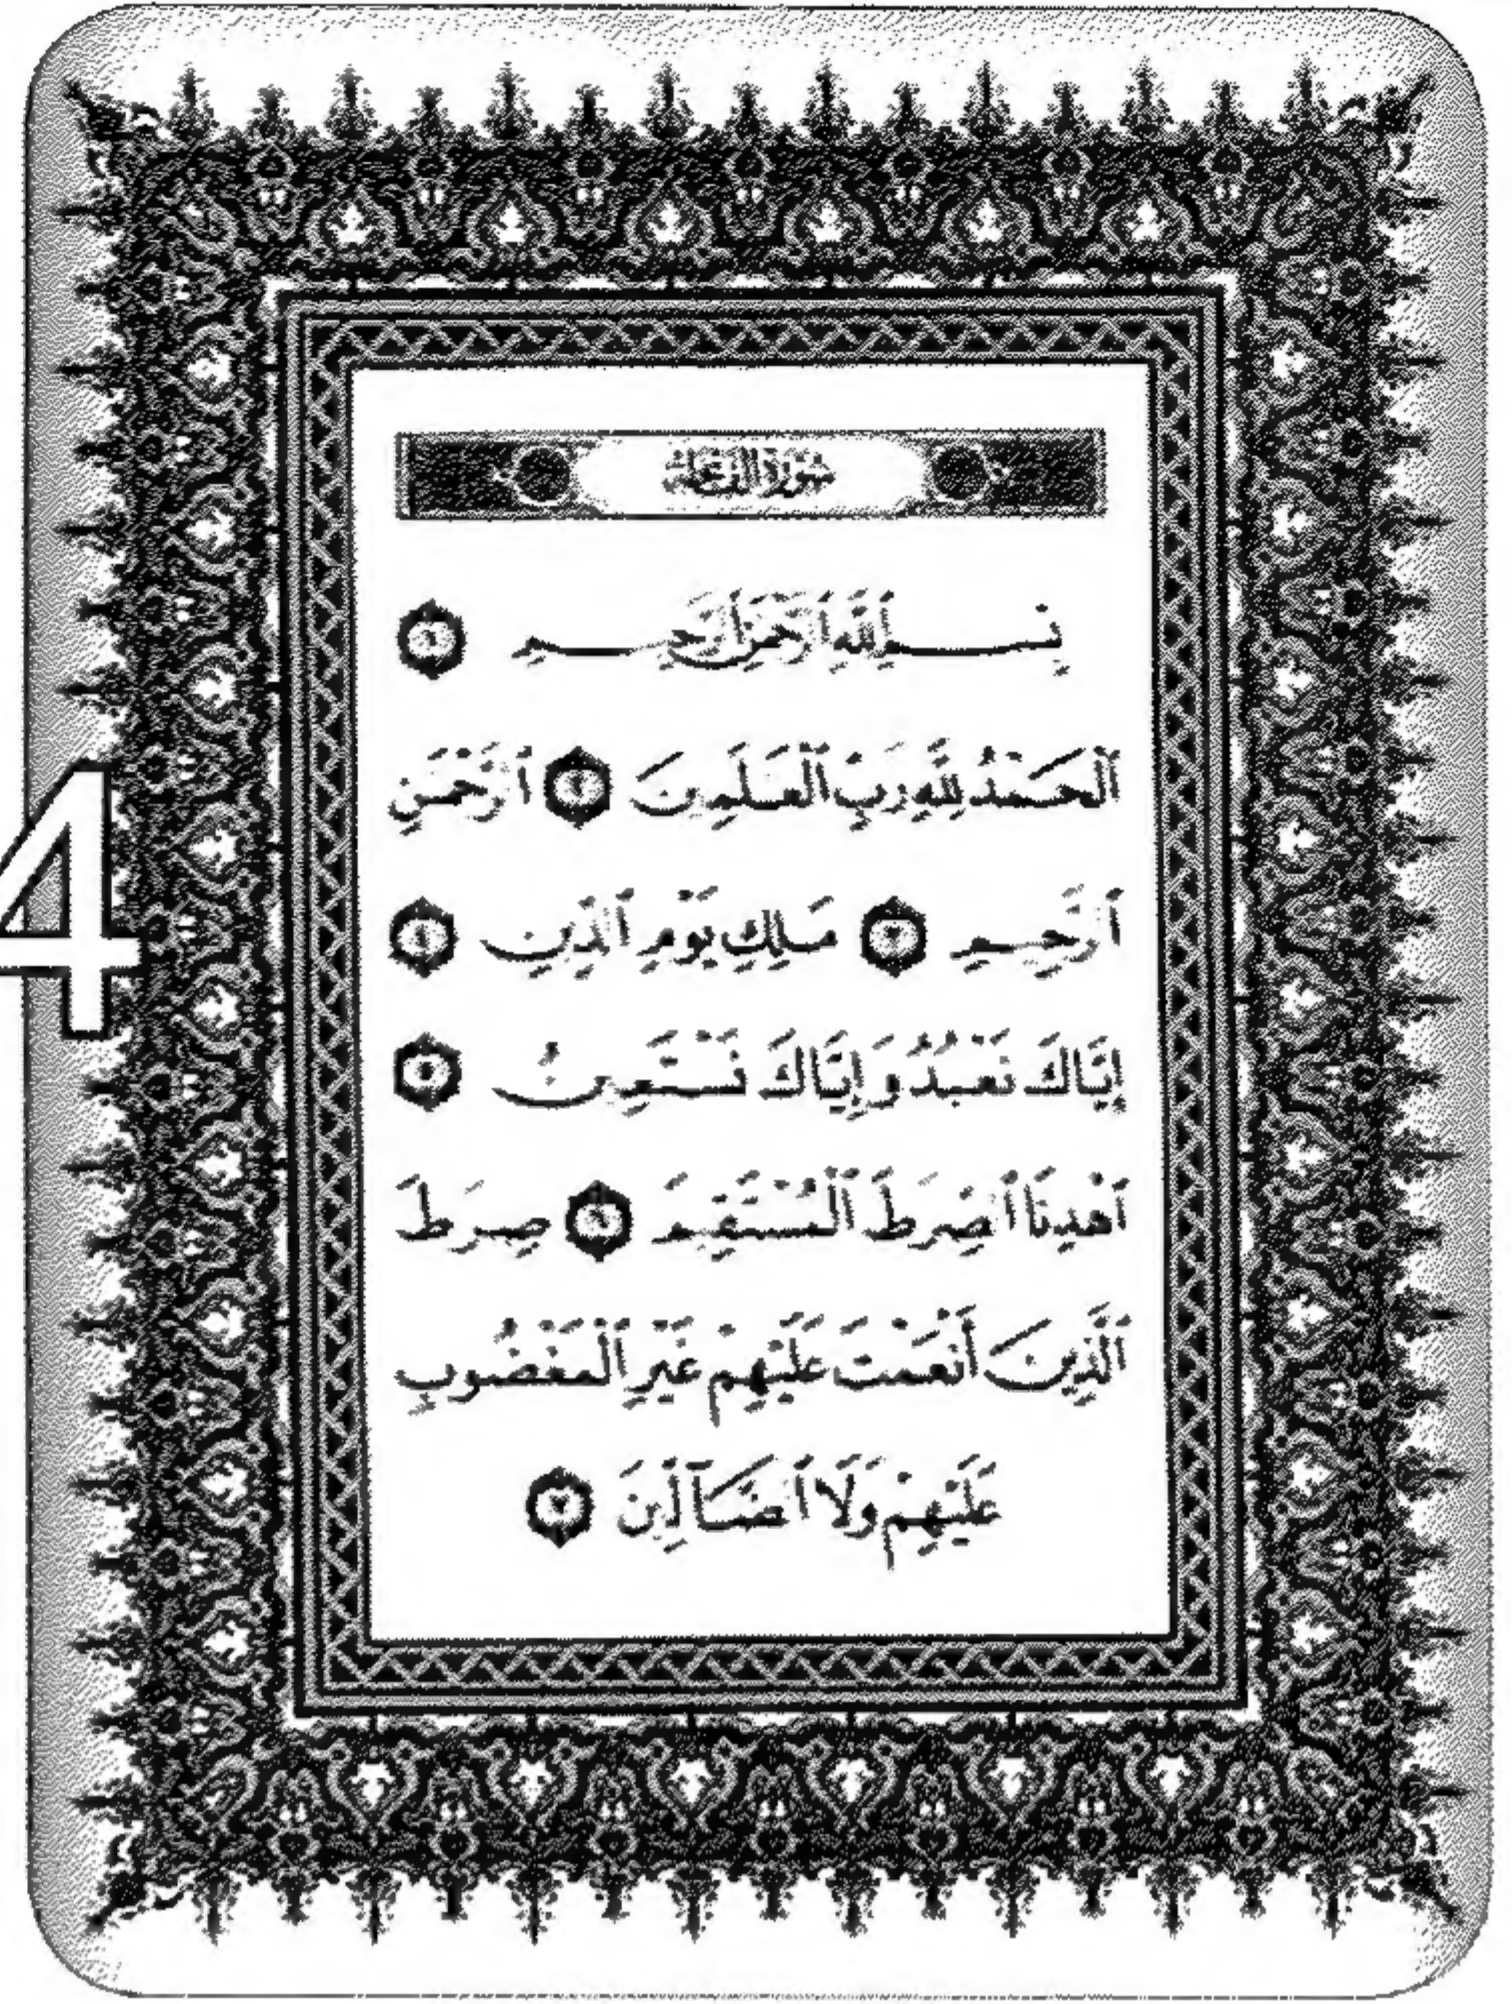 سورة الفاتحة
بِسْمِ ٱللَّهِ ٱلرَّحْمَٰنِ ٱلرَّحِيمِ ١
ٱلْحَمْدُ لِلَّهِ رَبِّ ٱلْعَٰلَمِينَ ٢ ٱلرَّحْمَٰنِ
ٱلرَّحِيمِ ٣ مَٰلِكِ يَوْمِ ٱلدِّينِ ٤
إِيَّاكَ نَعْبُدُ وَإِيَّاكَ نَسْتَعِينُ ٥
ٱهْدِنَا ٱلصِّرَٰطَ ٱلْمُسْتَقِيمَ ٦ صِرَٰطَ
ٱلَّذِينَ أَنْعَمْتَ عَلَيْهِمْ غَيْرِ ٱلْمَغْضُوبِ
عَلَيْهِمْ وَلَا ٱلضَّآلِّينَ ٧
4